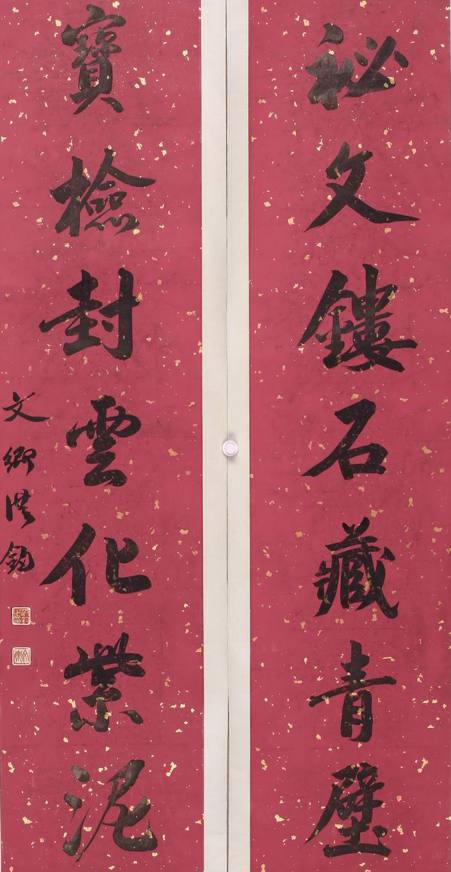 秘文鏤石藏青壁
寶檢封雲化紫泥
文卿洪鈞